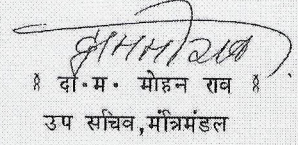 ॰ दा॰म॰ मोहन राव ॰
उप सचिव,मंत्रिमंडल